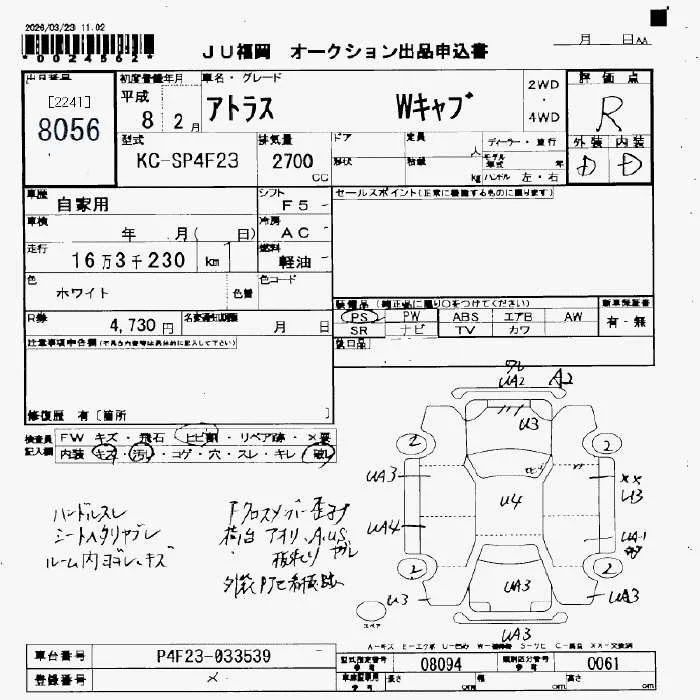 2026/03/23 11.02
*0024562*
JU福岡 オークション出品申込書
月 日 AA
出品番号
[2241]
8056
初度登録年月
平成
8 2月
車名・グレード
アトラス Wキャブ
2WD
・
4WD
評価点
R
外装 内装
D D
型式
KC-SP4F23
排気量
2700
CC
ドア
定員
人
ディーラー・並行
形状
積載
kg
モデル年式
年
ハンドル 左・右
車歴
自家用
シフト
F5
セールスポイント(正常に機能するものに限ります)
車検
年 月( 日)
冷房
AC
走行
16万3千230 km
燃料
軽油
色
ホワイト
色替
色コード
装備品 (純正品に限り○をつけてください)
新車保証書
PS PW ABS エアB AW
有・無
SR ナビ TV カワ
R券
4,730円
名変通知期限
月 日
欠口品
注意事項申告欄(不具合内容等は具体的に記入して下さい)
修復歴 有[箇所 ]
検査員記入欄
FW キズ・飛石・ヒビ割・リペア跡・×要
内装・キズ・汚れ・コゲ・穴・スレ・キレ・破レ
ハンドルスレ
シートヘタリヤブレ
ルーム内ヨゴレ、キズ
Fクロスメンバー歪み
荷台 アオリ、A,U,S
ワレ
UA2 A2
U3
2 2
UA3
XX
U3
U4
UA4
UA-1
2 2
U3
UA3
UA3
UA3
スペア
A-キズ E-エクボ U-凹み W-補修跡 S-サビ C-腐食 XX-交換済
車台番号
P4F23-033539
型式指定番号
参考
08094
類別区分番号
参考
0061
登録番号
メ-
車庫証明用
参考
長さ cm
幅 cm
高さ cm